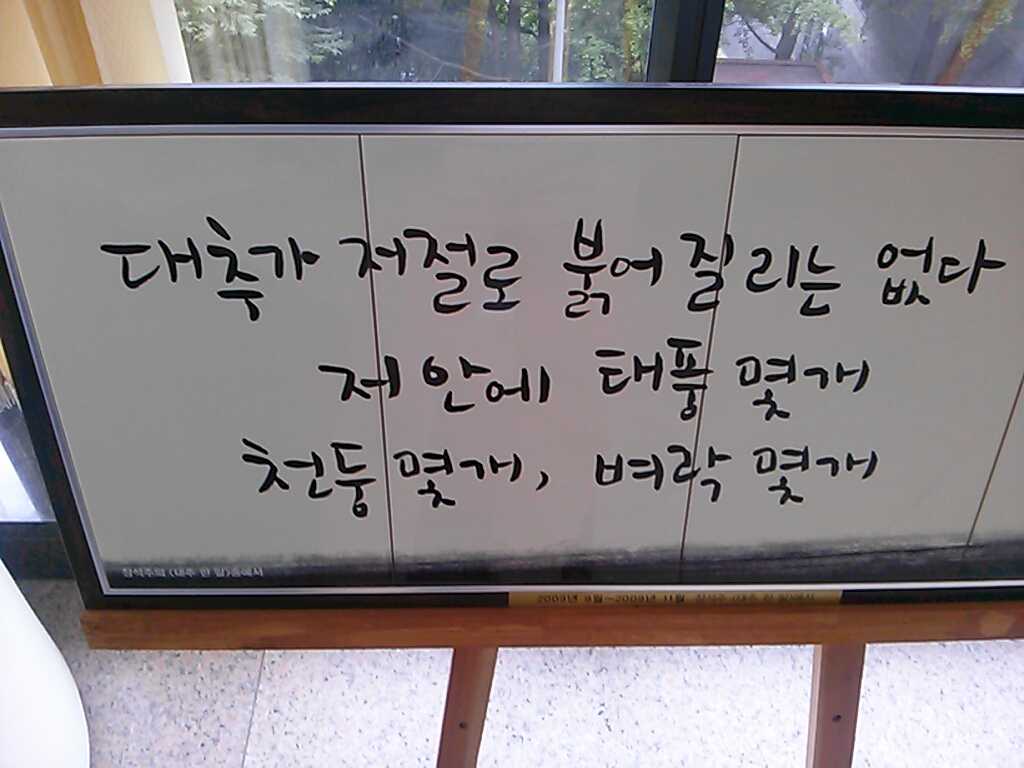 대추가 저절로 붉어질 리는 없다
제 안에 태풍 몇개
천둥 몇개, 벼락 몇개
장석주의 <대추 한 알>중에서
2009년 9월~2009년 11월 장석주 <대추 한 알>에서